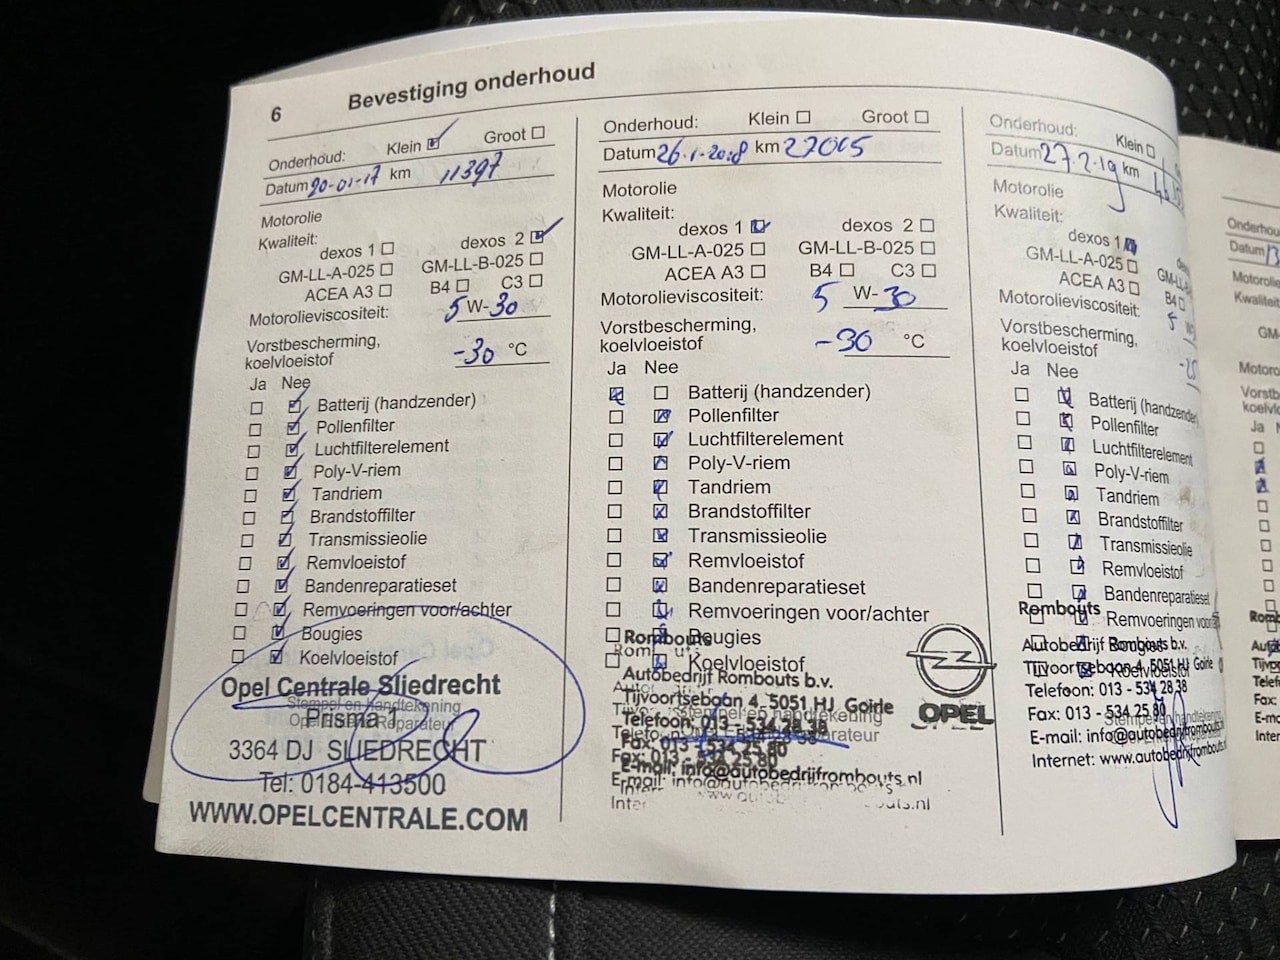 6 Bevestiging onderhoud
Onderhoud: Klein Groot
Datum 20-01-17 km 11397
Motorolie
Kwaliteit:
dexos 1 dexos 2
GM-LL-A-025 GM-LL-B-025
ACEA A3 B4 C3
Motorolieviscositeit: 5 W-30
Vorstbescherming,
koelvloeistof -30 °C
Ja Nee
Batterij (handzender)
Pollenfilter
Luchtfilterelement
Poly-V-riem
Tandriem
Brandstoffilter
Transmissieolie
Remvloeistof
Bandenreparatieset
Remvoeringen voor/achter
Bougies
Koelvloeistof
Opel Centrale Sliedrecht
Stempel en handtekening
Prisma 1
3364 DJ SLIEDRECHT
Tel: 0184-413500
WWW.OPELCENTRALE.COM
Onderhoud: Klein Groot
Datum 26-1-2018 km 22005
Motorolie
Kwaliteit:
dexos 1 dexos 2
GM-LL-A-025 GM-LL-B-025
ACEA A3 B4 C3
Motorolieviscositeit: 5 W-30
Vorstbescherming,
koelvloeistof -30 °C
Ja Nee
Batterij (handzender)
Pollenfilter
Luchtfilterelement
Poly-V-riem
Tandriem
Brandstoffilter
Transmissieolie
Remvloeistof
Bandenreparatieset
Remvoeringen voor/achter
Bougies
Koelvloeistof
Rombouts
Autobedrijf Rombouts b.v.
Tijvoortsebaan 4, 5051 HJ Goirle
Telefoon: 013 - 534 28 38
Fax: 013 - 534 25 80
E-mail: info@autobedrijfrombouts.nl
OPEL
Onderhoud: Klein
Datum 27-2-19 km
Motorolie
Kwaliteit:
dexos 1
GM-LL-A-025
ACEA A3 B4
Motorolieviscositeit: 5
Vorstbescherming,
koelvloeistof
Ja Nee
Batterij (handzender
Pollenfilter
Luchtfilterelement
Poly-V-riem
Tandriem
Brandstoffilter
Transmissieolie
Remvloeistof
Bandenreparatieset
Remvoeringen voor
Bougies
Koelvloeistof
Rombouts
Autobedrijf Rombouts b.v.
Tijvoortsebaan 4, 5051 HJ Goirle
Telefoon: 013 - 534 28 38
Fax: 013 - 534 25 80
E-mail: info@autobedrijfrombouts
Internet: www.autobedrijfrombouts
Onderhou
Datum
Motorolie
Kwaliteit
GM-
Motoro
Vorstb
koelvlo
Ja